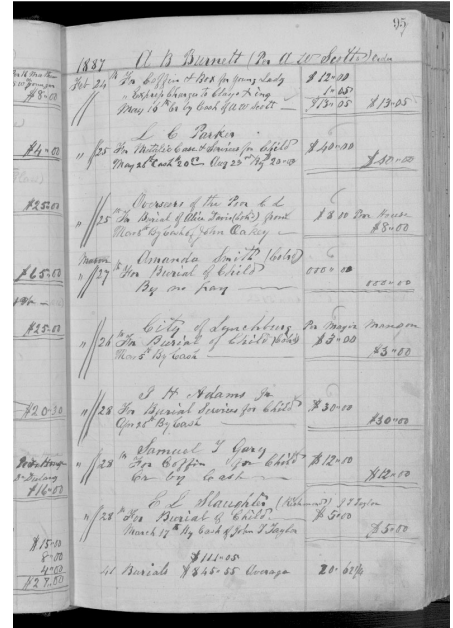 95
1887 A B Burnett (Per A W Scott) Order
Feb 24th For Coffin & Box for Young Lady $12-00
" Express Charges to Clays & ing 1-05
May 16th Cr by Cash of A W Scott — $13-05 $13-05
L C Parker
" 25 For Metylic Case & Services for Child $40-00
May 26th Cash 20 Aug 23rd By 20-00 $40-00
Overseers of the Poor C L
" 25th For Burial of (Cold) from $8 00 Poor House
Mar 8th By Cash of John Oakey — $8-00
Amanda Smith (Cold)
" 27th For Burial of Child 000-00
By no pay — 000-00
City of Lynchburg Per Mayor Mangon
" 26th For Burial of Child (Cold) $3-00
Mar 5th By Cash — $3-00
J H Adams Jr
" 28 For Burial Services for Child $30-00
Apr 25th By Cash — $30-00
Samuel T Gary
" 28th For Coffin for Child $12-00
Cr by Cash — $12-00
E L Slaughter (Richmond) J T Taylor
" 28th For Burial of Child $5-00
March 17th By Cash of John T Taylor $5-00
$111-05
41 Burials $845-55 Average 20-62¼
$8-00
$4-00
$25-00
$65-00
$25-00
$20-30
$16-00
$15-00
8-00
4-00
$27-00